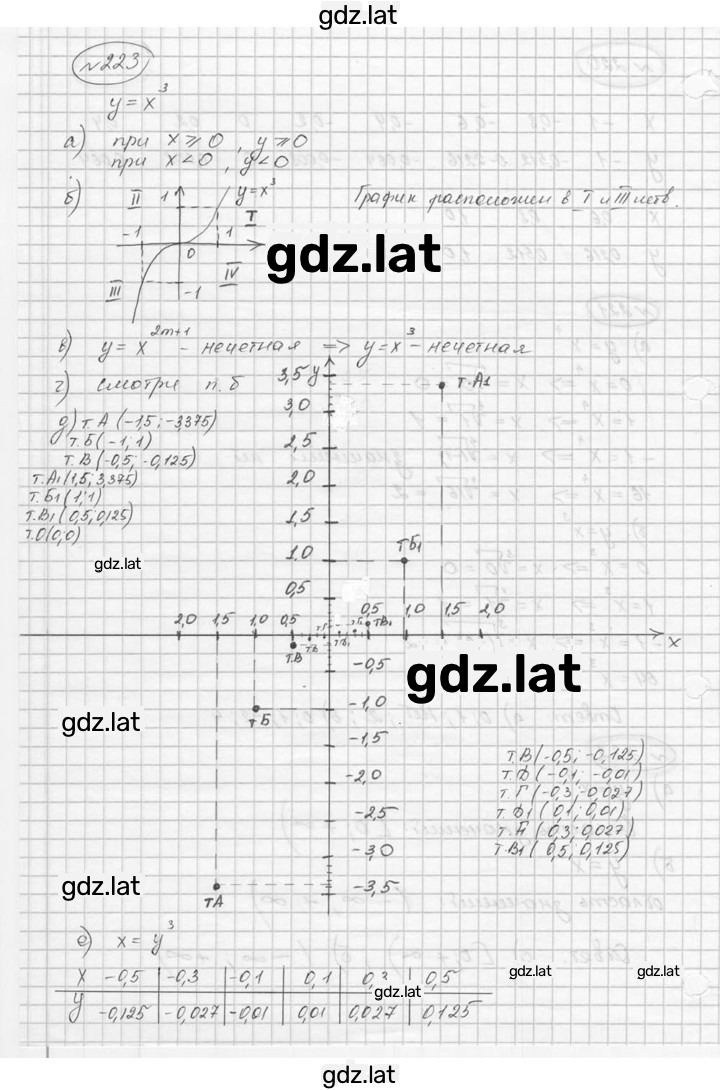 gdz.lat
№223
y = x³
а) при x ⩾ 0, y ⩾ 0
при x < 0, y < 0
б) II 1 y = x³ График расположен в I и III четв.
I
-1 0 1
gdz.lat
III IV
-1
в) y = x²ᵐ⁺¹ - нечетная => y = x³ - нечетная
г) смотри п. б
3,5 y
т.A1
3,0
д) т. А (-1,5; -3,375)
т. Б (-1, 1)
2,5
т. В (-0,5; -0,125)
т.А1 (1,5; 3,375)
2,0
т. Б1 (1; 1)
т.В1 (0,5; 0,125)
1,5
т.О (0; 0)
т.Б1
gdz.lat
1,0
0,5
2,0 1,5 1,0 0,5 0,5 1,0 1,5 2,0
т.В1
x
т.В
-0,5
gdz.lat
-1,0
т.Б
gdz.lat
-1,5
т.В (-0,5; -0,125)
-2,0
т.Ф (-0,1; -0,01)
т. Г (-0,3; -0,027)
-2,5
т. Ф1 (0,1; 0,01)
т. Г1 (0,3; 0,027)
-3,0
т.В1 (0,5; 0,125)
gdz.lat
-3,5
т.А
е) x = y³
x -0,5 -0,3 -0,1 0,1 0,3 0,5
gdz.lat gdz.lat
gdz.lat
y -0,125 -0,027 -0,01 0,01 0,027 0,125
gdz.lat